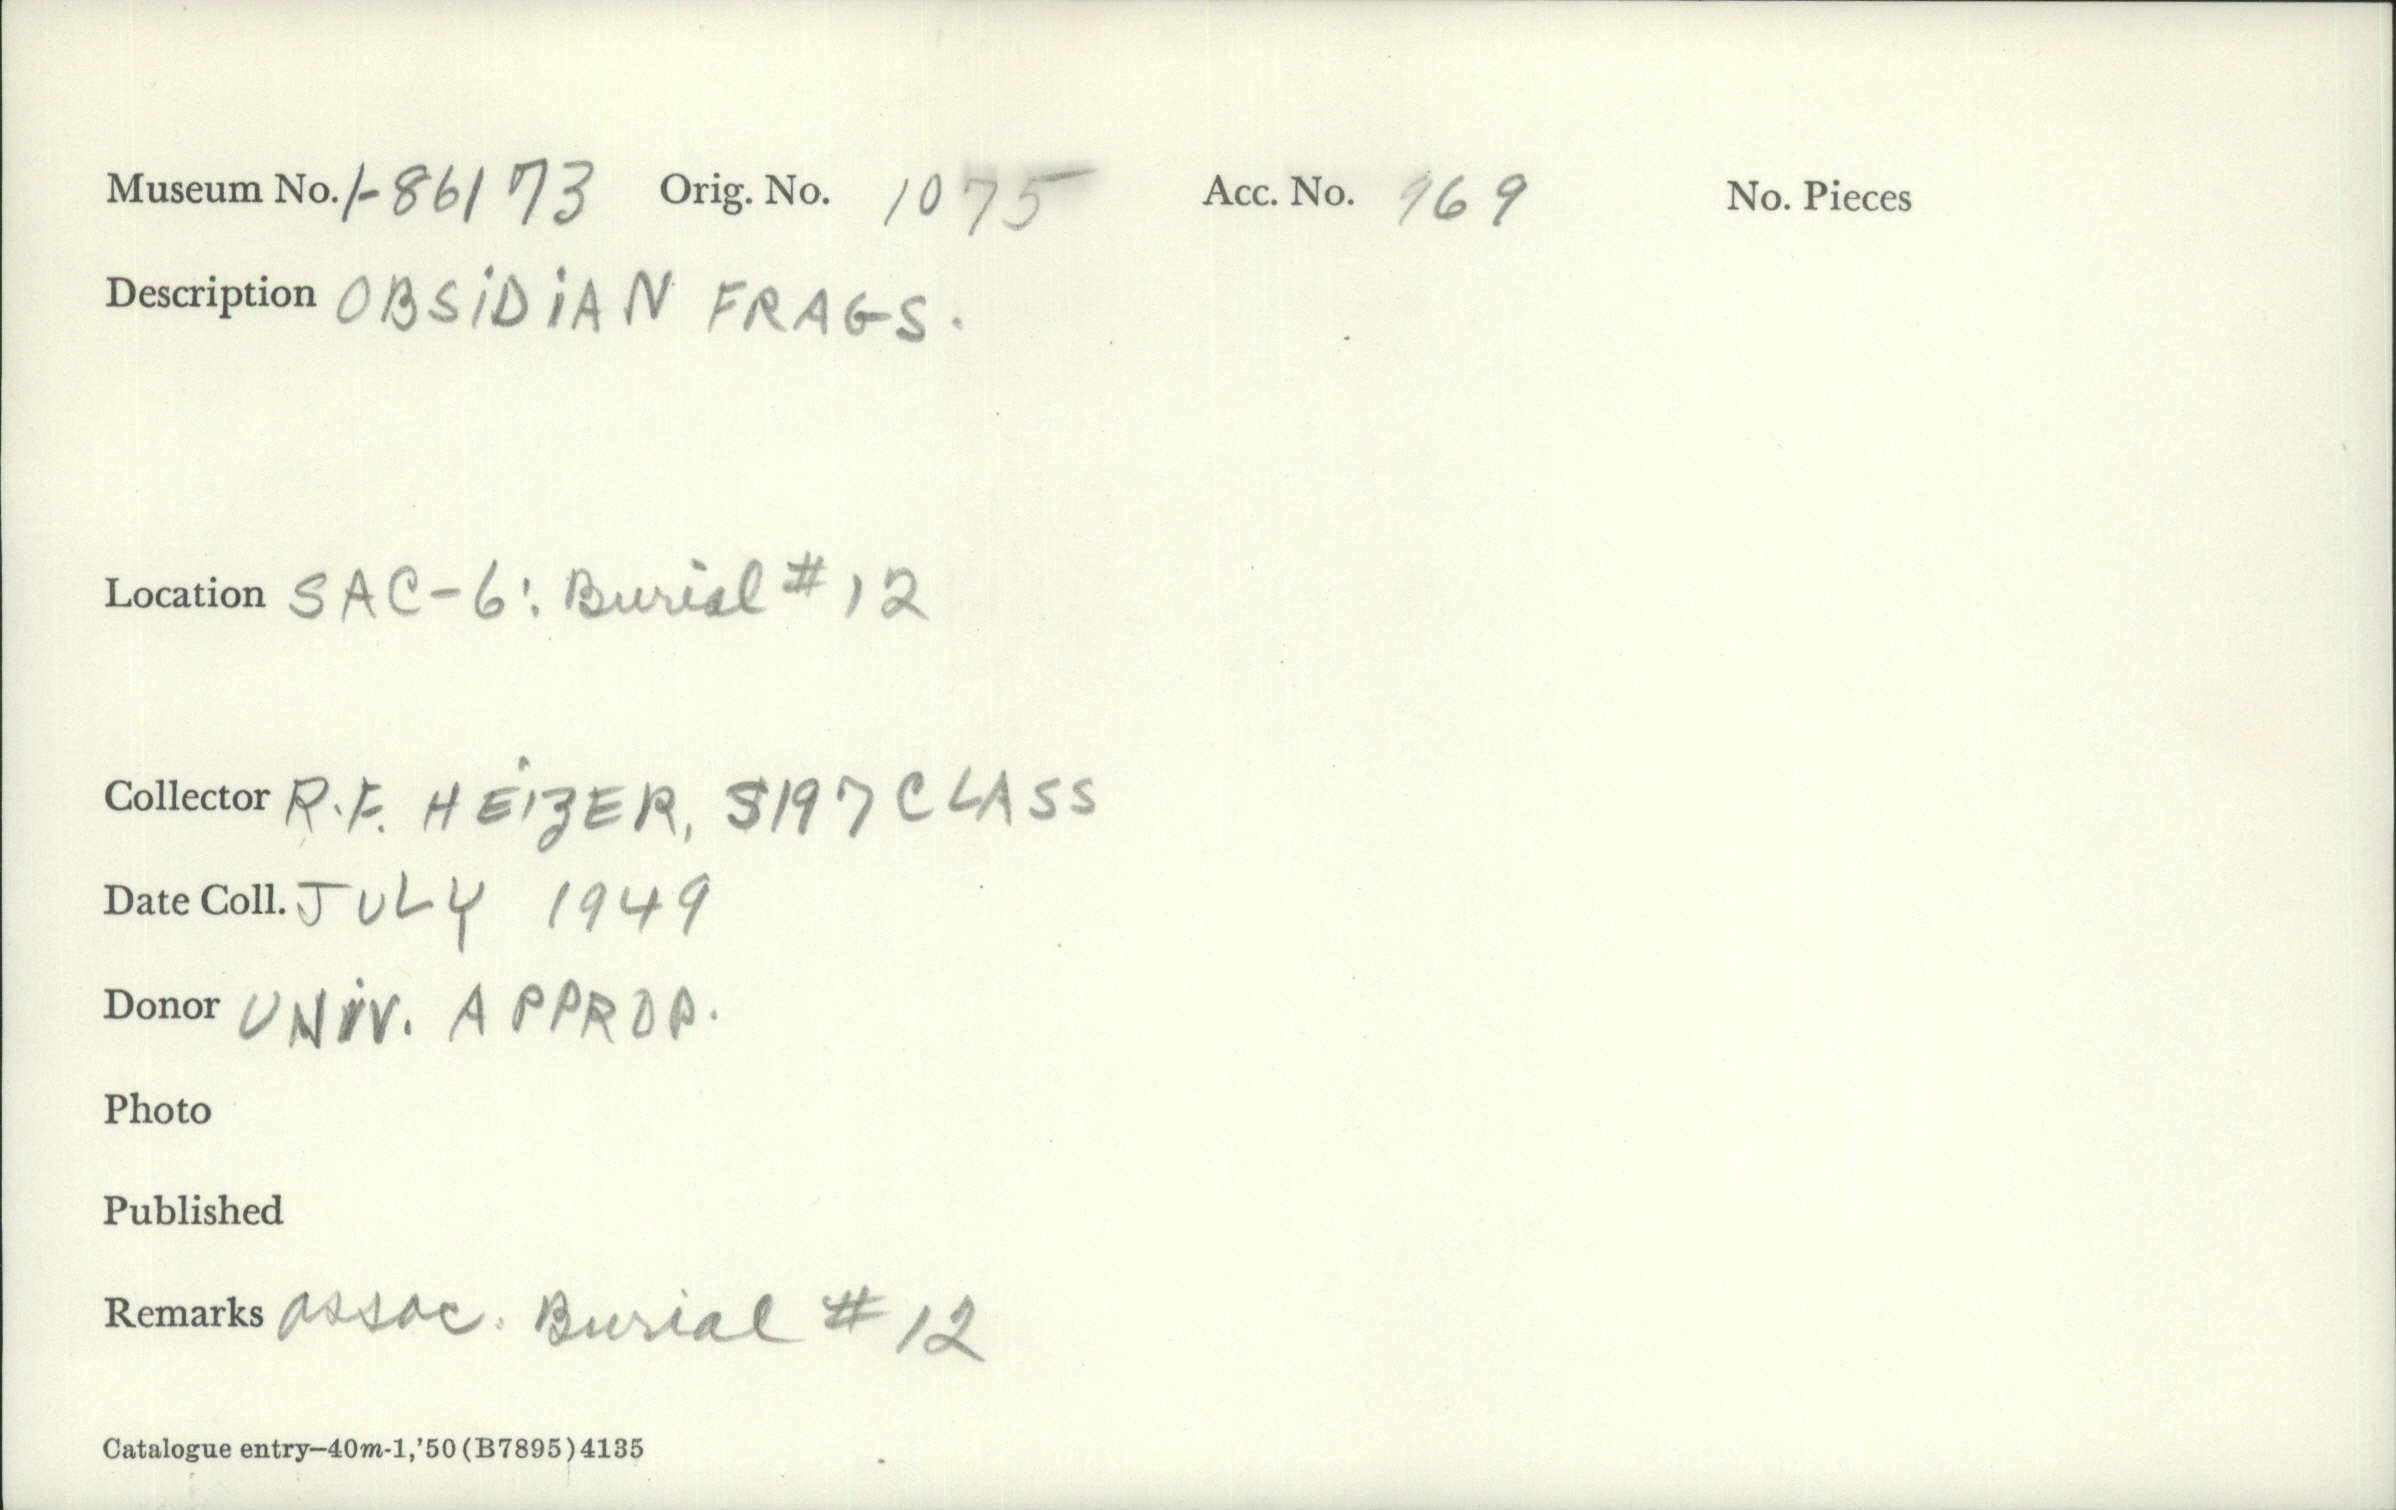 Museum No. 1-86173 Orig. No. 1075 Acc. No. 969 No. Pieces
Description OBSiDiAN FRAGS.
Location SAC-6: Burial #12
Collector R.F. HEiZER, S197 CLASS
Date Coll. JULY 1949
Donor UNiV. APPROP.
Photo
Published
Remarks assoc. Burial #12
Catalogue entry—40m-1,'50(B7895)4135